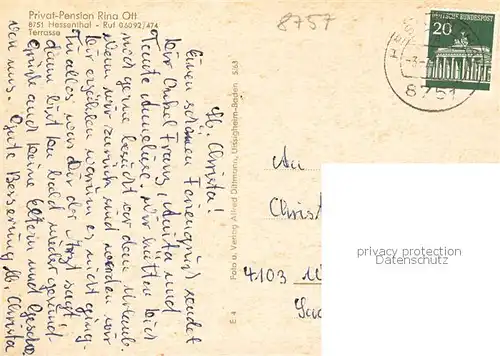 Privat-Pension Rina Ott
8751 Hessenthal - Ruf 06092/474
Terrasse
8757
DEUTSCHE BUNDESPOST
20
8751
Lb. Christa!
Einen schönen Feriengruß sendet
Dir Onkel Franz, Anita und
Tante Anneliese. Wir hätten Dich
noch gerne besucht vor dem Urlaub.
Wenn wir zurück sind werden wir
Dir erzählen warum es nicht ging.
Tu alles was Dir der Arzt sagt
dann bist Du bald wieder gesund.
Grüße auch Deine Eltern und Geschw.
von uns. Gute Besserung lb. Christa
Foto u. Verlag Alfred Dittmann, Uissigheim-Baden
5/63
E 4
An
Christ
4103
privacy protection
Ansichtskarten-Center.de